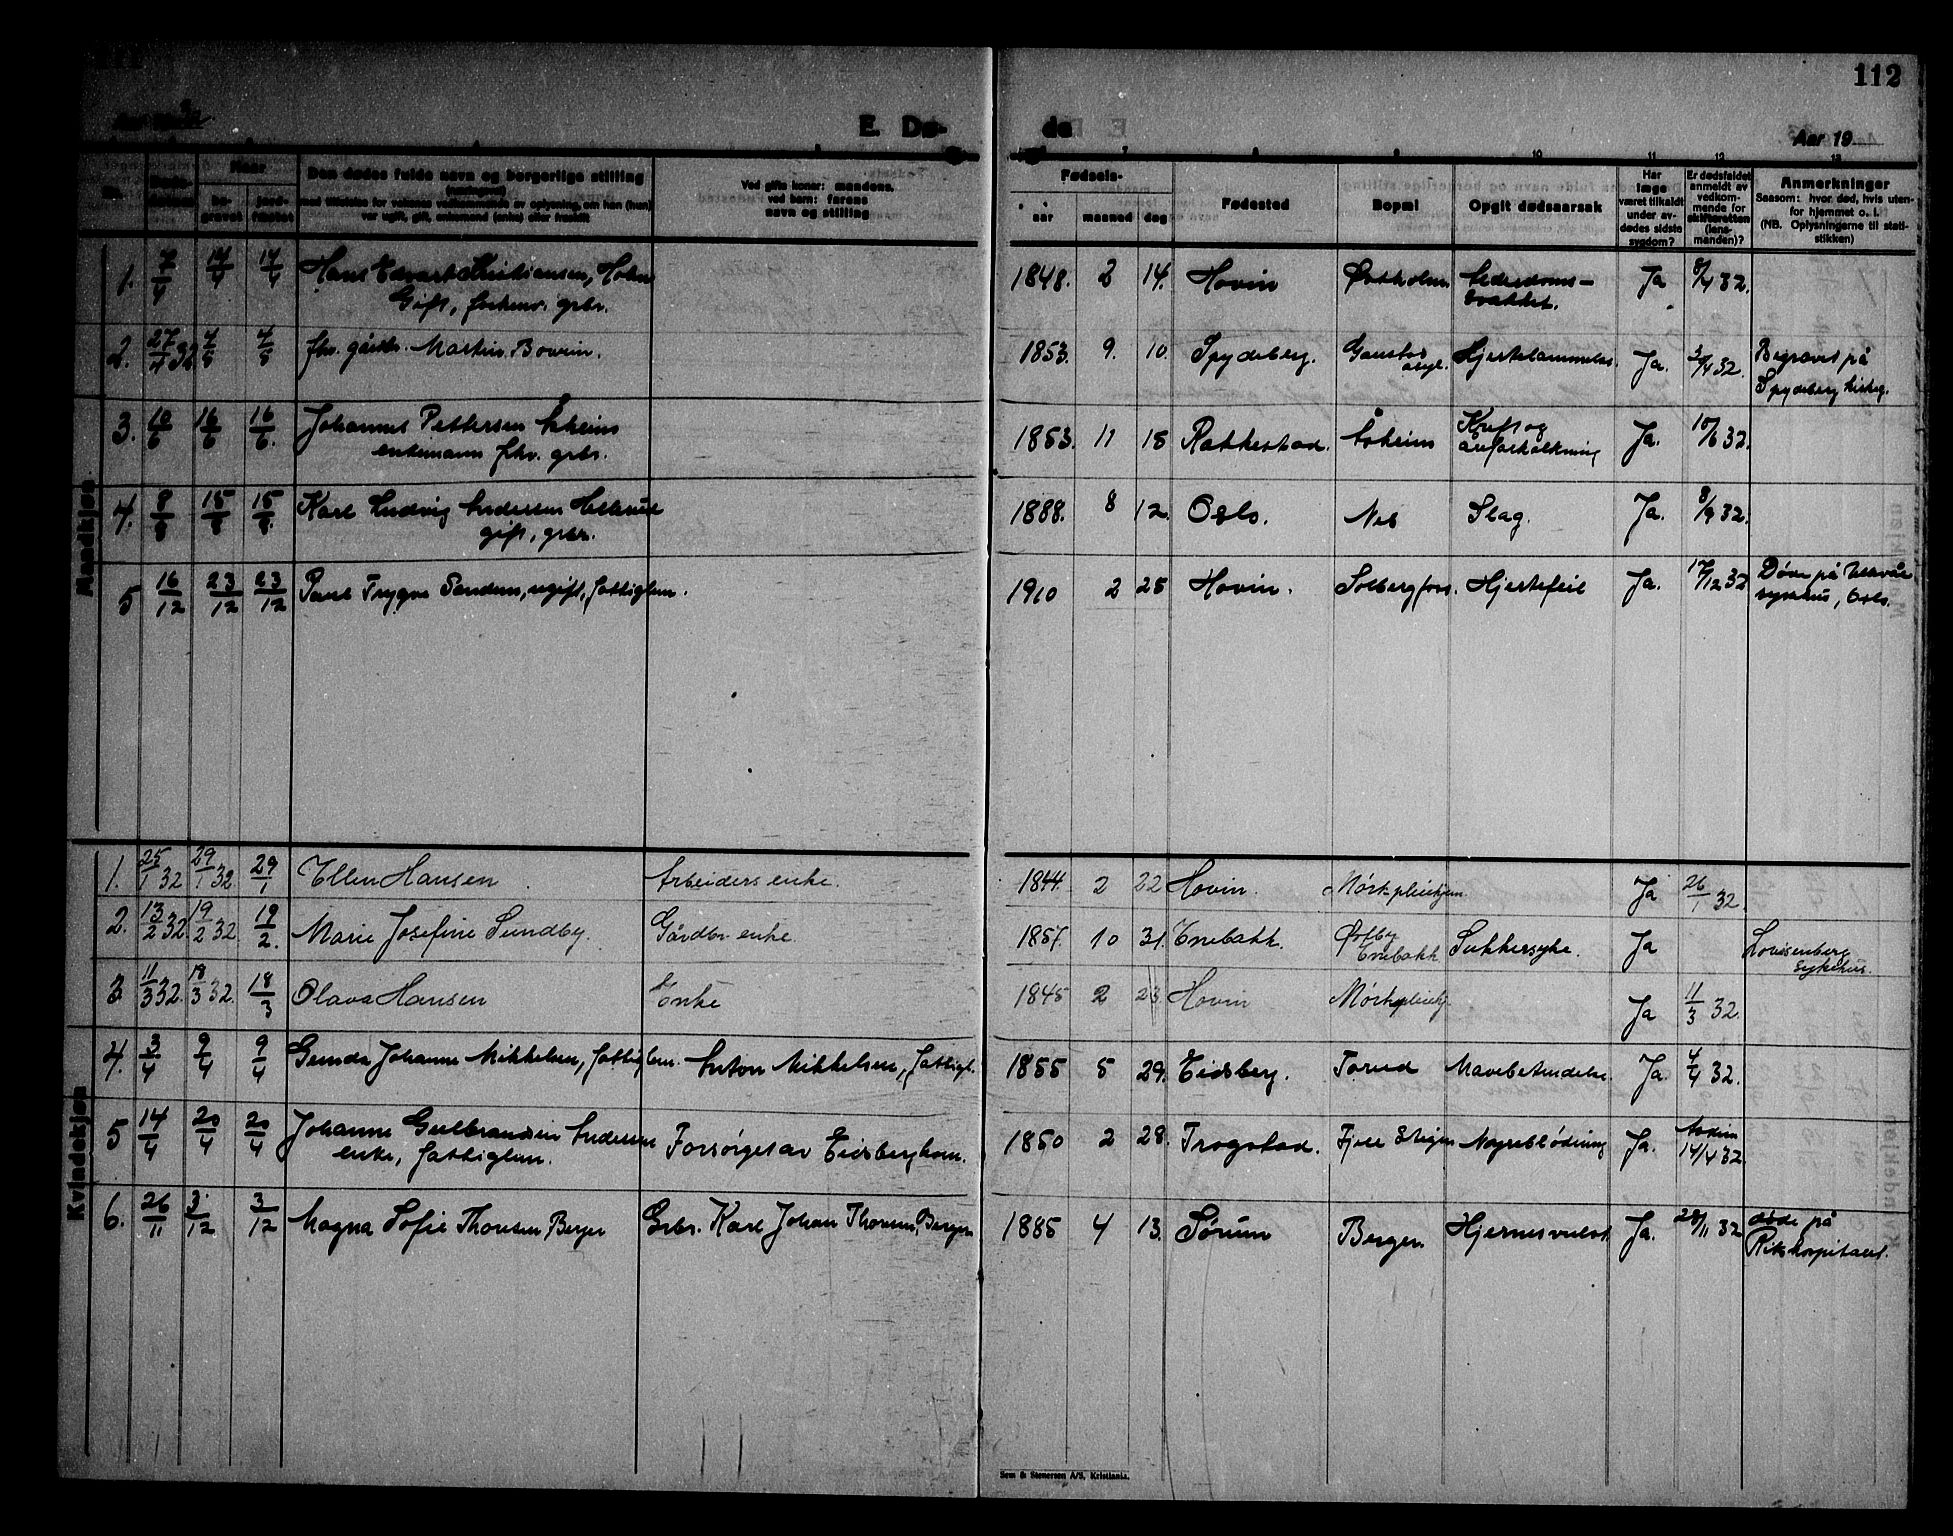 112
E. Dø-
de
Aar 19
Nr.
Den dødes fulde navn og borgerlige stilling
Ved gifte koner: mandens,
ved barn: farens
navn og stilling
Fødsels-
aar maaned dag
Fødested
Bopæl
Opgit dødsaarsak
Har
læge
været tilkaldt
under av-
dødes sidste
sygdom?
Er dødsfaldet
anmeldt av
vedkom-
mende for
skifteretten
(lens-
manden)?
Anmerkninger
Saasom: hvor død, hvis uten-
for hjemmet o. l.
(NB. Oplysningerne til stati-
stikken)
Mandkjøn
1. 7/4 14/4 14/4 Hans Edvart Kristiansen, Holm
Gift, forhenv. grbr.
1848. 2 14. Hovin Østholm Alderdoms-
svakhet. Ja 8/4 32.
2. 27/4 32 4/5 4/5 fhv. gårdbr. Martin Bovim.
1853. 9. 10. Spydeberg. Gaustad
asyl. Hjertelammelse. Ja. 3/4 32. Begravet på
Spydeberg kirkeg.
3. 10/6 16/6 16/6. Johannes Pettersen Åsheim
enkemann fhv. grbr.
1853. 11 18 Rakkestad. Åsheim Kreft og
åreforkalkning Ja. 10/6 32.
4. 8/8 15/8 15/8. Karl Ludvig Andersen
gift, grbr.
1888. 8 12. Oslo. Nes Slag. Ja. 8/9 32.
5 16/12 23/12 23/12 Paul Trygve Sandem, ugift, fattiglem.
1910 2 25 Hovin. Solbergfoss. Hjertefeil Ja. 17/12 32 Døde på Ullevål
sykehus, Oslo.
Kvindekjøn
1. 25/1 32 29/1 32 29/1 Ellen Hansen Arbeiders enke.
1844. 2 22 Hovin. Mørk pleiehjem Ja 26/1 32.
2. 13/2 32. 19/2 32. 19/2. Marie Josefine Sundby. Gårdbr enke.
1857. 10 31. Enebakk. Ødlby
Enebakk Sukkersyke. Ja Lovisenberg
Sykehus
3. 11/3 32. 18/3 32. 18/3 Olava Hansen Enke
1845 2 23 Hovin Mørk pleiehj Ja 11/3 32.
4. 3/4 9/4 9/4 Gunda Johanne Mikkelsen, fattiglem. Anton Mikkelsen, fattigl.
1855 5 29. Eidsberg. Torud Mavebetendelse. Ja. 4/4 32.
5 14/4 20/4 20/4 Johanne Gulbrandsen Andersen
enke, fattiglem. Forsørges av Eidsberg kom.
1850 2 28. Trøgstad. Fjell Stigen Nyreblødning Ja. 14/4 32.
6. 26/11 3/12 3/12 Magna Sofie Thoresen Berger Grbr. Karl Johan Thoresen, Berger
1885 4 13. Sørum Berger. Hjernesvulst Ja. 28/11 32 døde på
Rikshospitalet.
Sem & Stenersen A/S, Kristiania.